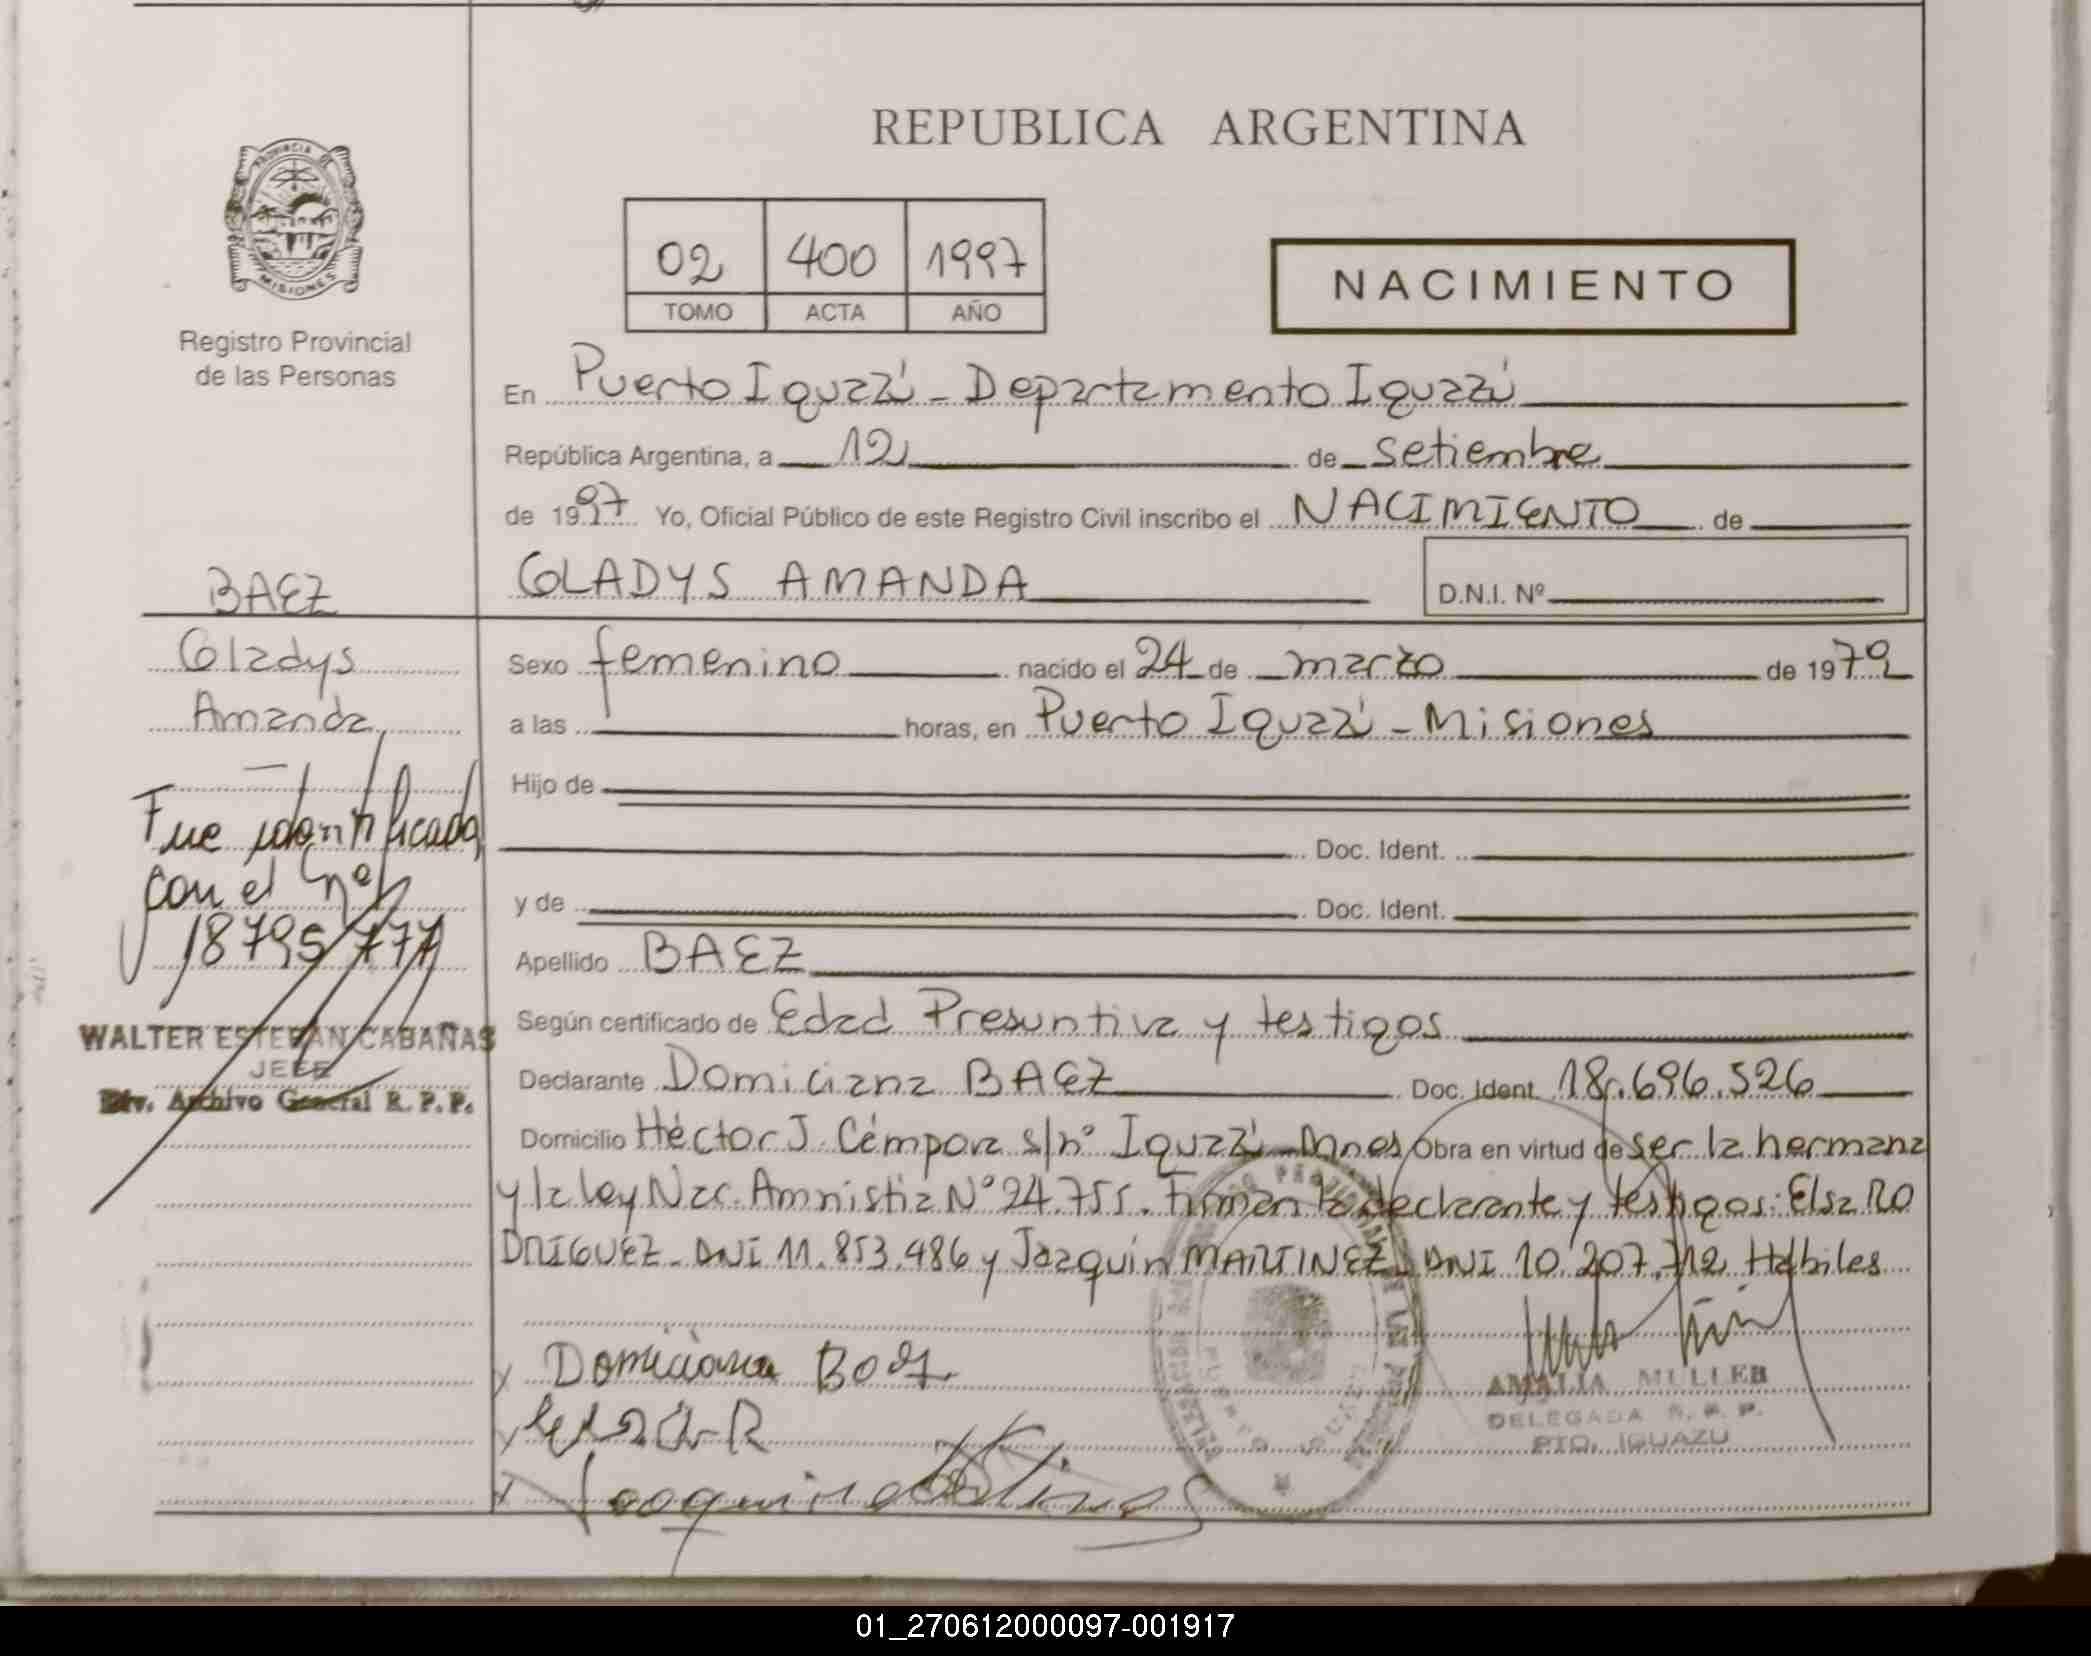 REPUBLICA ARGENTINA
PROVINCIA DE
MISIONES
Registro Provincial
de las Personas
02 400 1997
TOMO ACTA AÑO
NACIMIENTO
En Puerto Iguazú - Departamento Iguazú
República Argentina, a 12 de setiembre
de 1997 Yo, Oficial Público de este Registro Civil inscribo el NACIMIENTO de
GLADYS AMANDA D.N.I. Nº
BAEZ
Gladys
Amanda
Fue identificada
con el nº
18795777
WALTER ESTEBAN CABAÑAS
JEFE
Div. Archivo General R. P. P.
Sexo femenino nacido el 24 de marzo de 1979
a las horas, en Puerto Iguazú - Misiones
Hijo de
Doc. Ident.
y de Doc. Ident.
Apellido BAEZ
Según certificado de Edad Presuntiva y testigos
Declarante Domiciana BAEZ Doc. Ident. 18.696.526
Domicilio Héctor J. Cámpora s/nº Iguazú - Mnes Obra en virtud de ser la hermana
y la ley Nac. Amnistia Nº 24.755. Firman la declarante y testigos: Elsa RO
DRIGUEZ - DNI 11.853.486 y Joaquín MARTINEZ - DNI 10.207.712 Hábiles
Domiciana Baez
Joaquin Martines
AMALIA MULLER
DELEGADA R. P. P.
PTO. IGUAZU
01_270612000097-001917